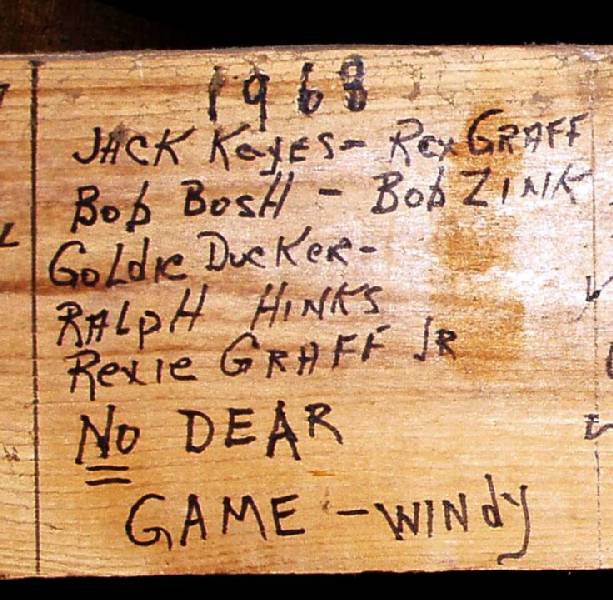 1968
JACK KeyES- Rex GRAFF
Bob BosH - Bob ZINK
GoLdie DucKeR-
RALpH HINKS
Rexie GRAFF JR
No DEAR
GAME - WINdy